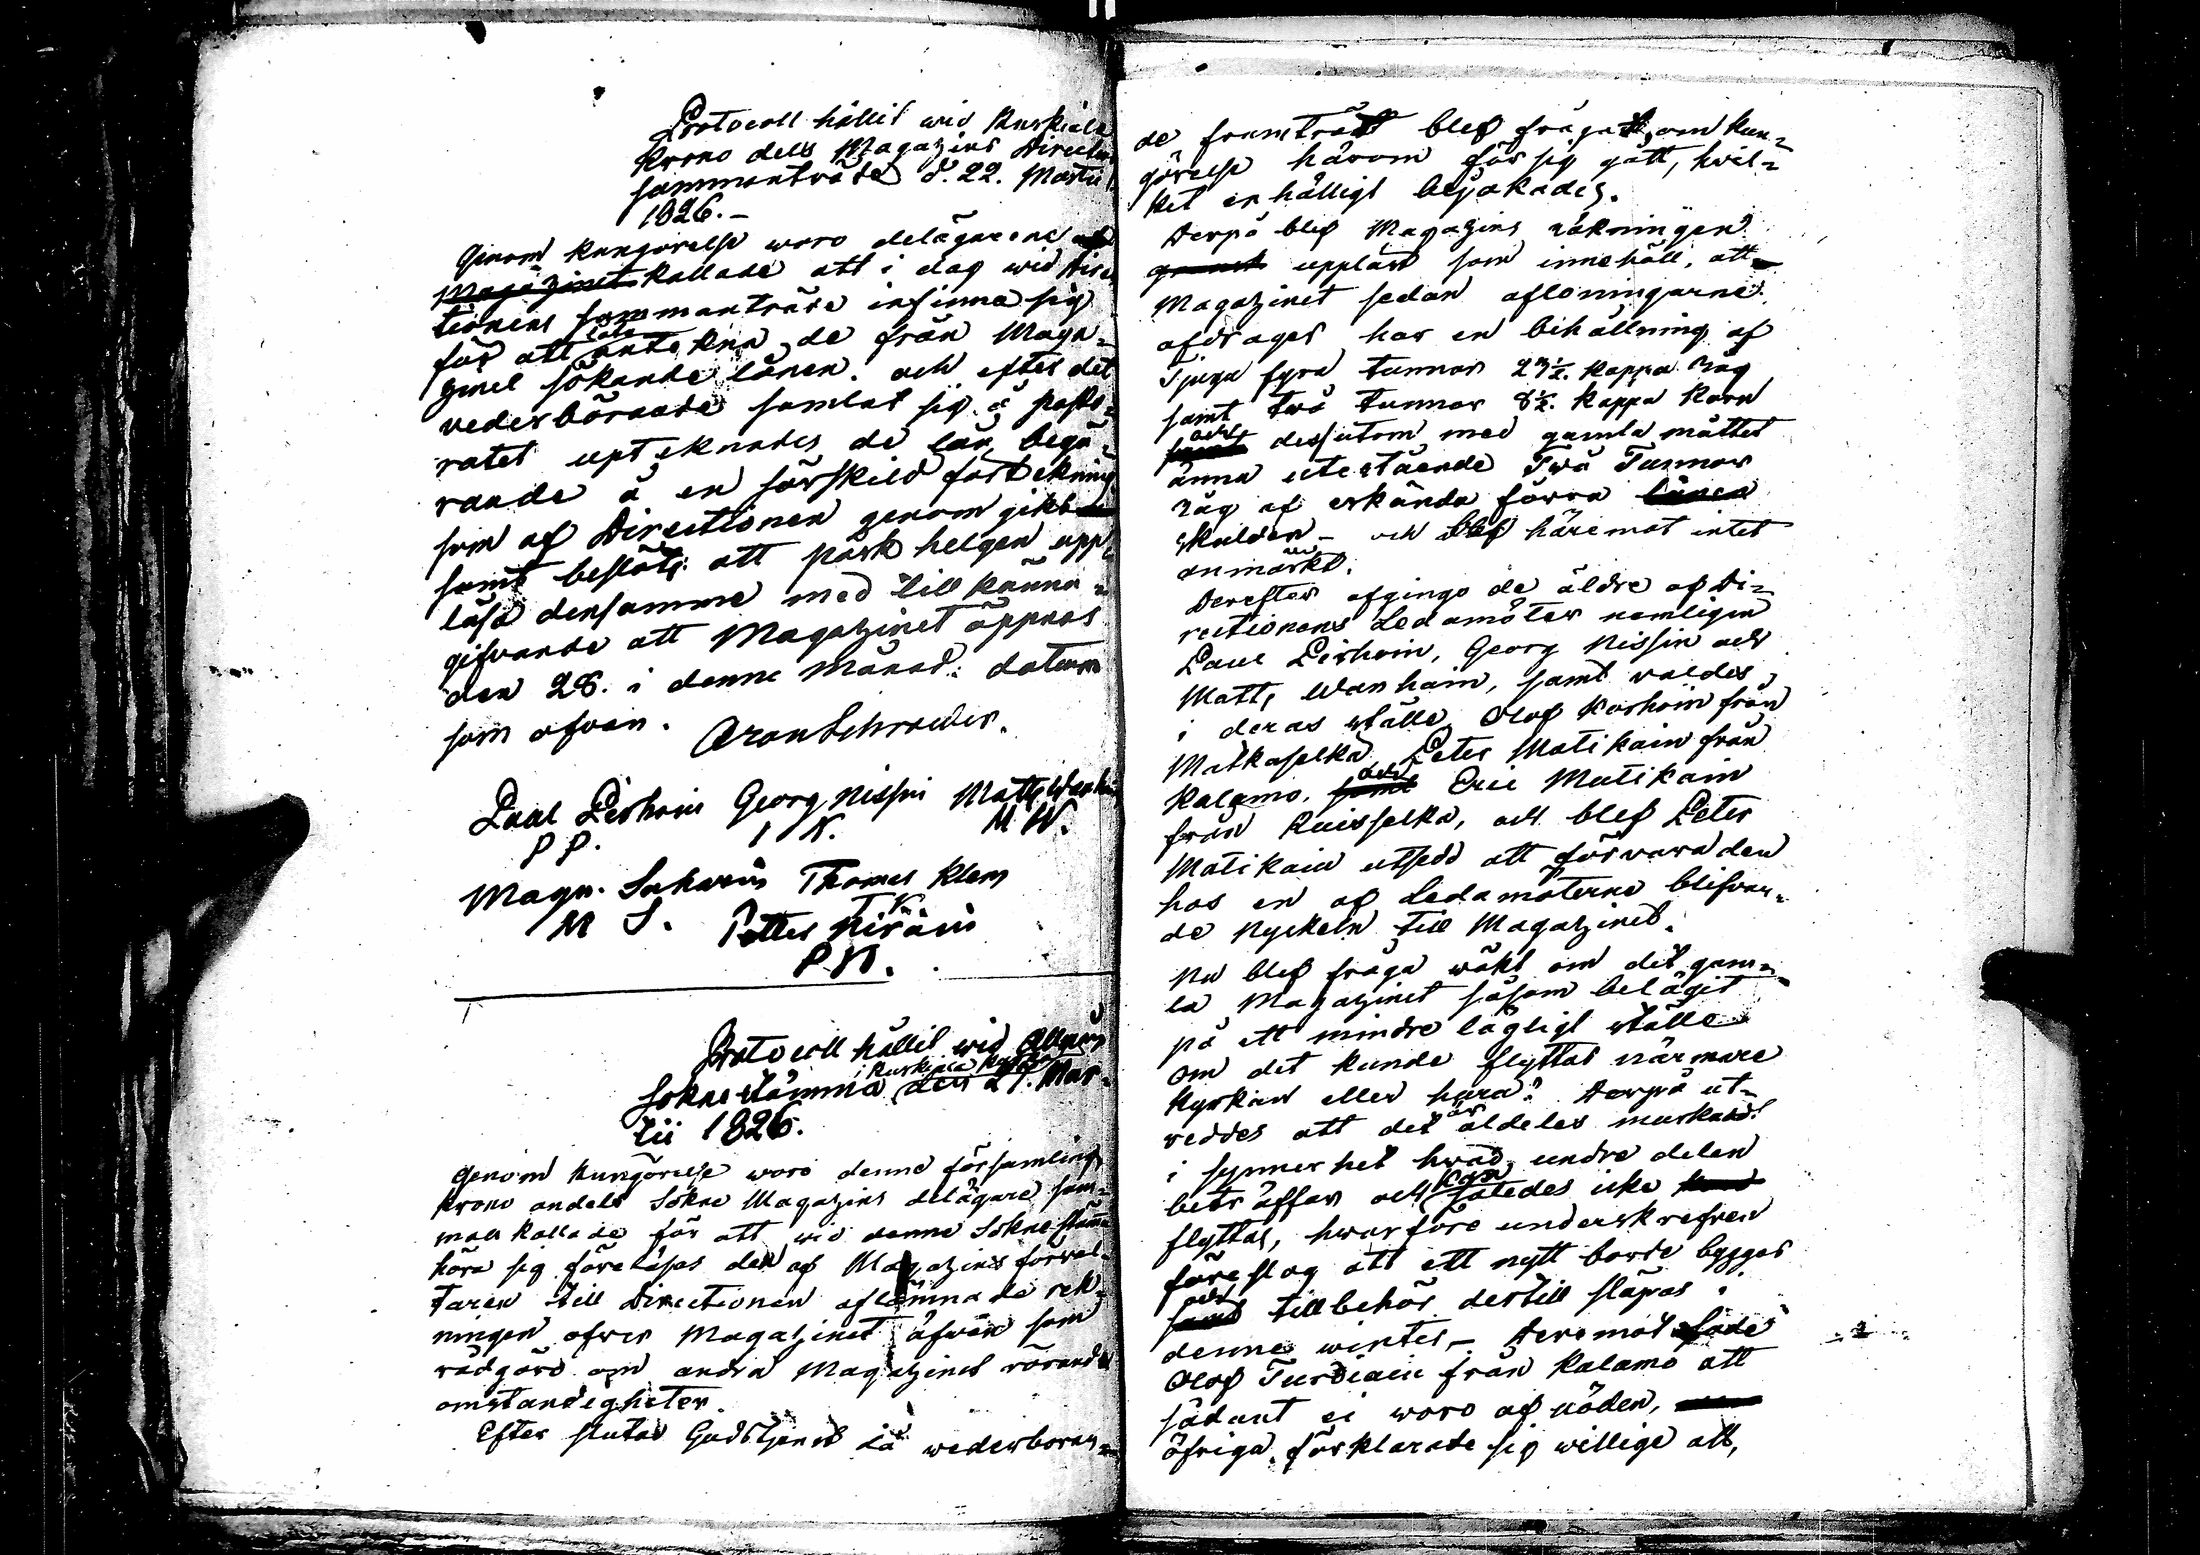 Protocoll hållit wid Ruskiala
Krono dels Magazins Direction
sammanträde d. 22. Martii
1826.-
Genom kungörelse woro delägarene af
Magazinet kallade att i dag wid Direc
tionens sammanträde infinna sig
för att låta antekna de från Maga-
zinet sökande lånen. och efter det
vederbörande samlat sig å pasto-
ratet upteknades de lån begä-
rande å en särskild förtekning
som af Directionen genomgikts
samt beslöts att påsk helgen upp-
läsa densamme med tillkänna-
gifvande att Magazinet öppnas
den 28. i denne Månad: datum
som ofvan. Aron Schroeder.
Paul Pirhoin Georg Nissin Matts Wanhain
P P. I N. M W.
Magn. Sakarin Thomas Klem
M S. T K.
Petter Niräin
P. N.
Protocoll hållit wid Allmän
Sokne stämma i Ruskiala Kyrka den 27. Mar-
tii 1826.
Genom kungörelse woro denne församlings
krono andels Sokne Magazins delägare sam-
man kallade för att wid denne Soknestämma
höra sig föreläsas den af Magazins förval-
taren till Directionen aflämnade räk-
ningen öfver Magazinet äfwen som
rådgöra om andra Magazinet rörande
omständigheter.
Efter slutad Gudstjenst då wederböran-
de framträdt blef frågat, om kun-
görelse härom för sig gått, hvil-
ket enhälligt bejakades.
Derpå blef Magazins räkningen
granskt uppläst som innehåll, att
Magazinet sedan aflöningarne
afdrages har en behållning af
Tjugu fyra tunnor 27½. kappa råg
samt två tunnor 8½. kappa Korn
samt och dessutom med gamla måttet
ännu utestående Två Tunnor
råg af erkända förra lånen
skulden - och blef häremot intet
anmärkt.
Derefter afgingo de äldre af Di-
rectionens Ledamöter nemligen
Paul Pirhoin, Georg Nissin och
Matts Wanhain, samt valdes
i deras ställe Olof Karhoin från
Matkaselkä Peter Matikain från
Kalamo, samt och Eric Matikain
från Ruisselkä, och blef Peter
Matikain utsedd att förvara den
hos en af Ledamöterne blifvan-
de Nyckeln till Magazinet.
Nu blef fråga wäkt om det gam-
la Magazinet såsom belägit
på ett mindre lägligt ställe
om det kunde flyttas närmare
Kyrkan eller hura? Derpå ut-
reddes att det är aldeles murknadt
i synnerhet hwad undre delen
beträffar och således kan icke kand
flyttas, hwarföre underskrefven
föreslog att ett nytt borde byggas
samt och tillbehör dertill släpas i
denne winter - Deremot sade
Olof Turdiain från Kalamo att
sådant ei woro af nöden,
öfriga förklarade sig willige att,